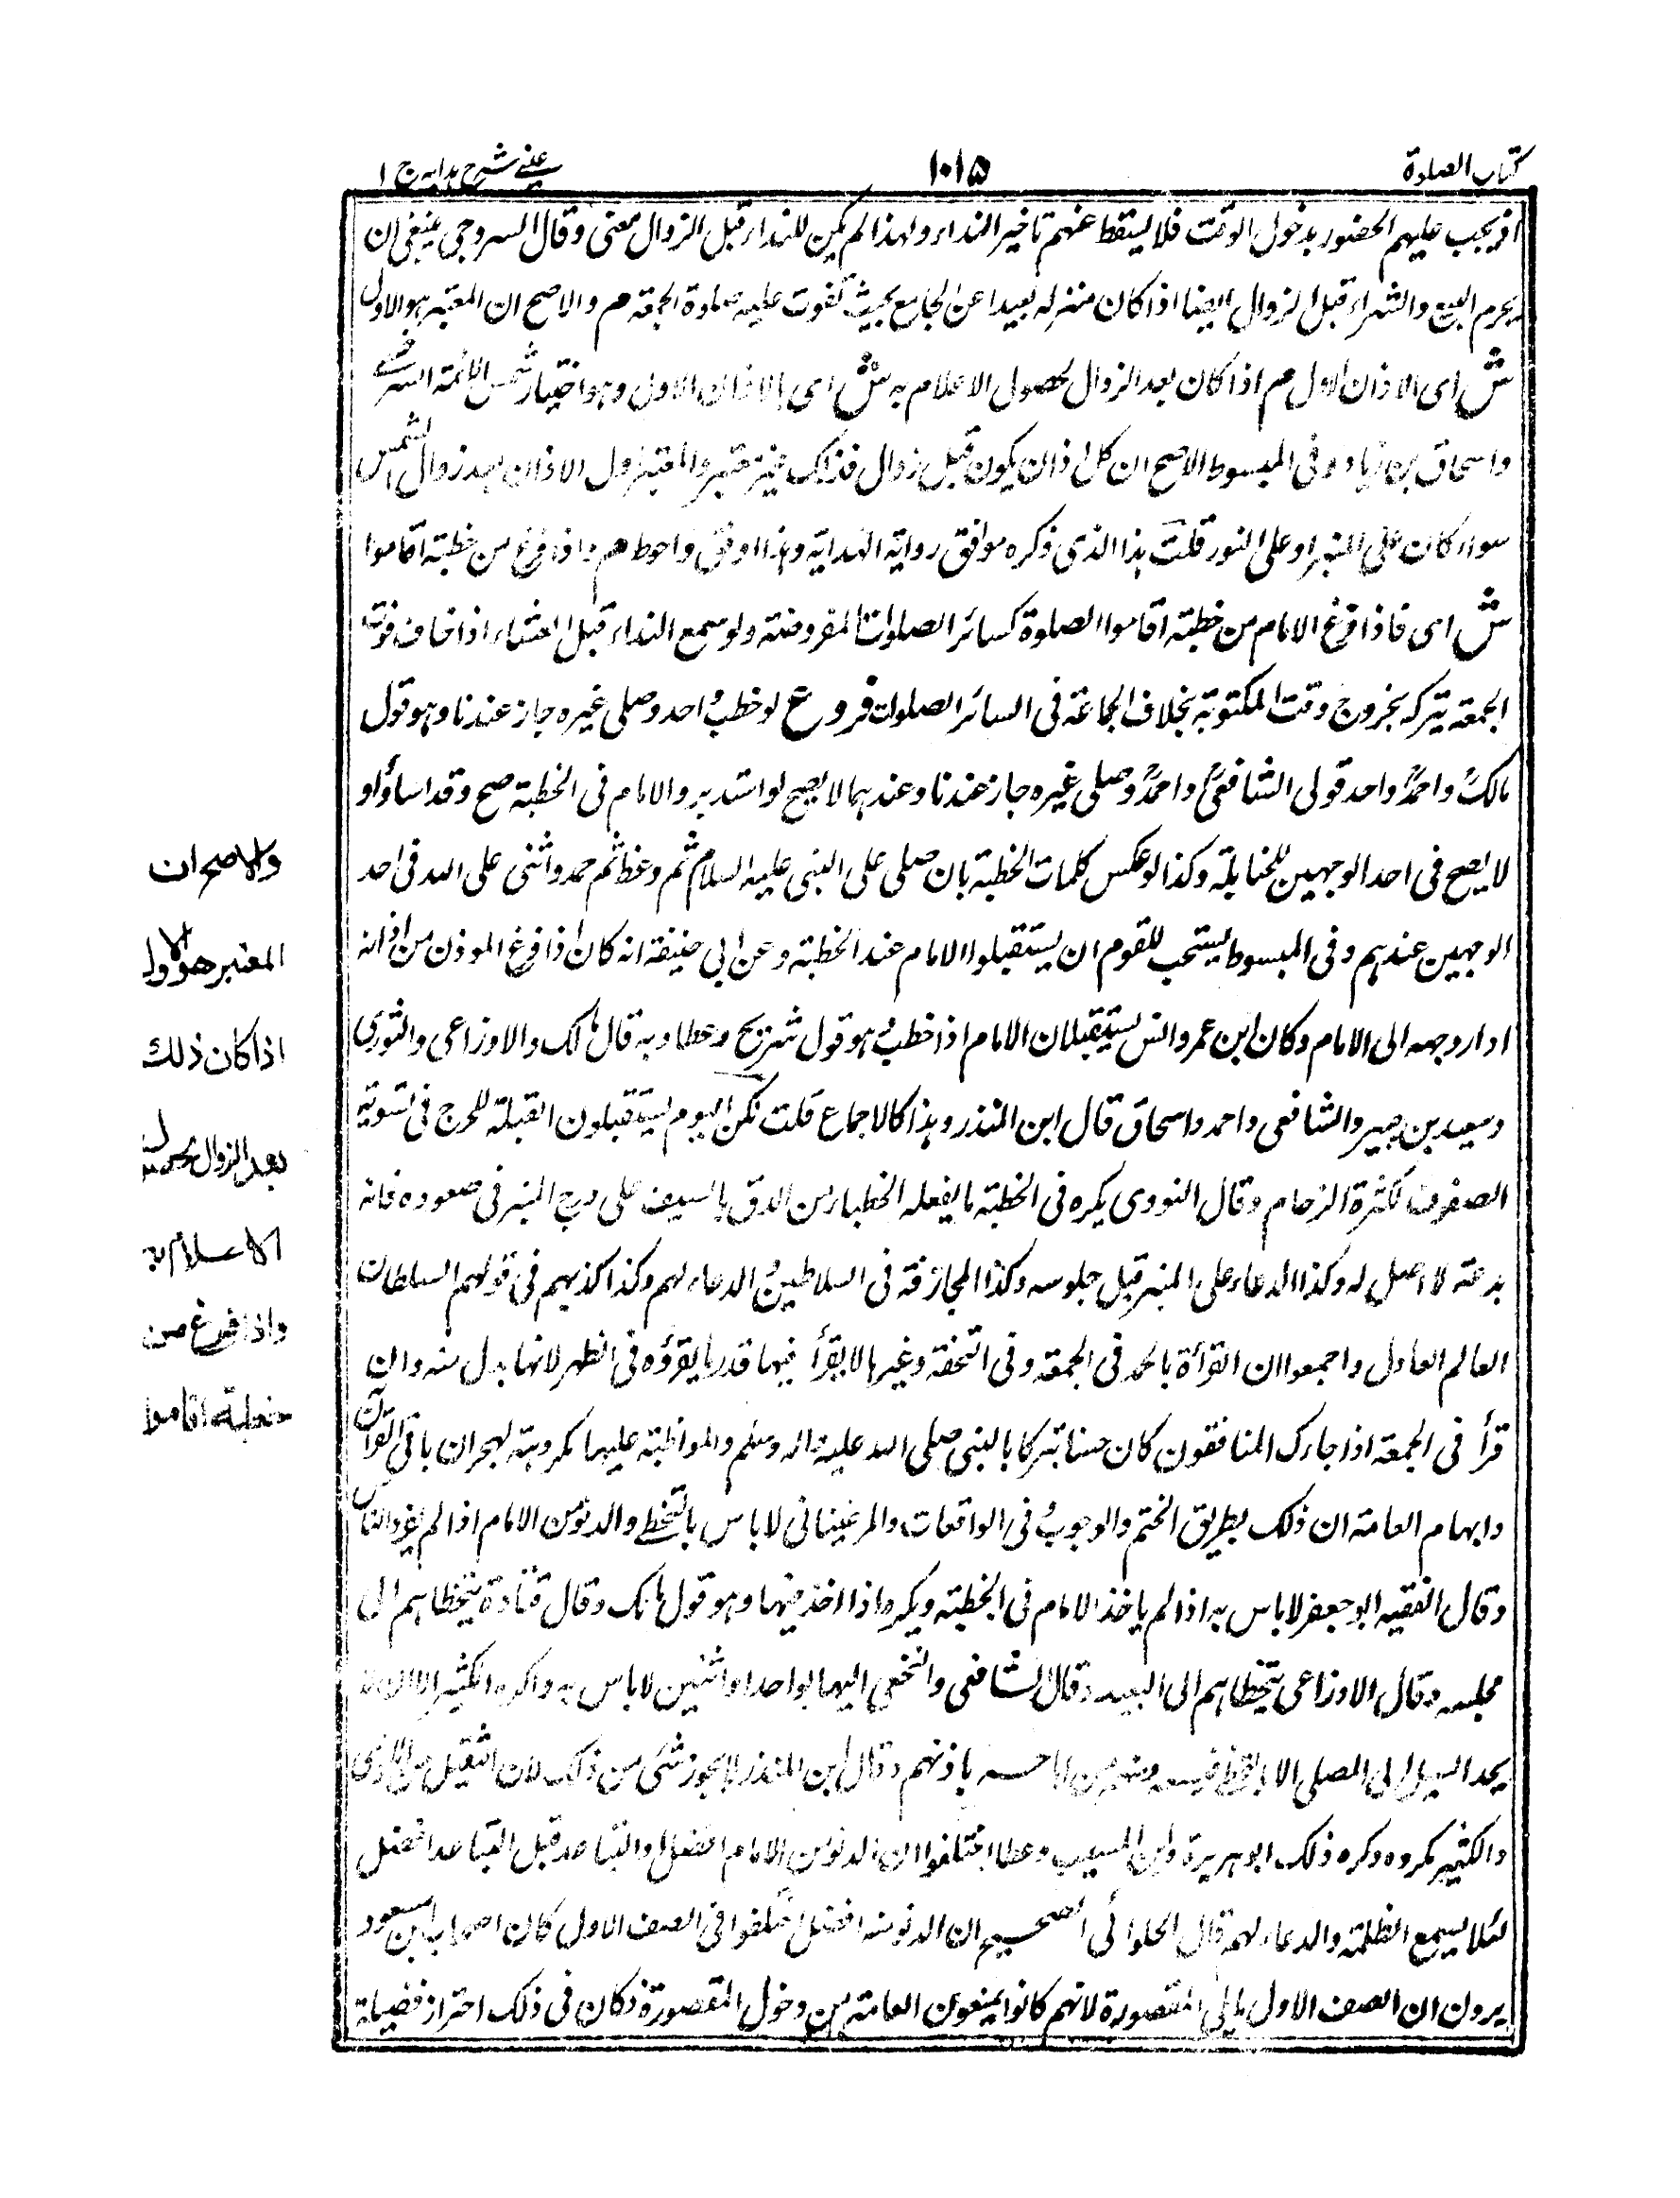 كتاب الصلوة
١٠١٥
عينى شرح هدايه ج ١
اذ يجب عليهم الحضور بدخول الوقت فلا يسقط عنهم تاخير النداء ولهذا لم يكن للنداء قبل الزوال معنى وقال السروجى ينبغى ان
يحرم البيع والشراء قبل الزوال ايضا اذا كان منزله بعيدا عن الجامع بحيث تفوت عليه صلوة الجمعة م والاصح ان المعتبر هو الاول
ش اى الاذان الاول م اذا كان بعد الزوال لحصول الاعلام به ش اى بالاذان الاول وهو اختيار شمس الائمة السرخسى
واسحاق بن زياد وفى المبسوط الاصح ان كل اذان يكون قبل زوال فذلك غير معتبر والمعتبر اول الاذان بعد زوال الشمس
سواء كان على المنبر او على الزور قلت هذا الذى ذكره موافق رواية الهداية وهذا اوفق واحوط م واذا فرغ من خطبته اقاموا
ش اى فاذا فرغ الامام من خطبته اقاموا الصلوة كسائر الصلوات المفروضة ولو سمع النداء قبل العشاء اذا خاف فوت
الجمعة يتركه بخروج وقت المكتوبة بخلاف الجماعة فى السائر الصلوات فروع لو خطب احد وصلى غيره جاز عندنا وهو قول
مالك واحمد واحد قولى الشافعى واحمد وصلى غيره جاز عندنا وعندهما لا يصح لو استدبروا الامام فى الخطبة صح وقد اساؤا او
لا يصح فى احد الوجهين للحنابلة وكذا لو عكس كلمات الخطبة بان صلى على النبى عليه السلام ثم وعظ ثم حمد واثنى على الله فى احد
الوجهين عندهم وفى المبسوط يستحب للقوم ان يستقبلوا الامام عند الخطبة وعن ابى حنيفة انه كان اذا فرغ الموذن من اذانه
ادار وجهه الى الامام وكان ابن عمر وانس يستقبلان الامام اذا خطب هو قول شريح وعطا وبه قال مالك والاوزاعى والثورى
وسعيد بن جبير والشافعى واحمد واسحاق قال ابن المنذر وهذا كالاجماع قلت لكن اليوم يستقبلون القبلة للحرج فى تسوية
الصفوف لكثرة الزحام وقال النووى يكره فى الخطبة ما يفعله الخطباء من الدق بالسيف على درج المنبر فى صعوده فانه
بدعة لا اصل له وكذا الدعاء على المنبر قبل جلوسه وكذا المجازفة فى السلاطين الدعاء لهم وكذا كذبهم فى قولهم السلطان
العالم العادل واجمعوا ان القرأة بالحمد فى الجمعة وفى التحفة وغيرها لا يقرأ فيها قدر ما يقرؤه فى الظهر لانها بدل منه وان
قرأ فى الجمعة اذا جاءك المنافقون كان حسنا تبركا بالنبى صلى الله عليه واله وسلم والمواظبة عليها مكروهة لهجران باقى القرآن
وايهام العامة ان ذلك بطريق الختم والوجوب فى الواقعات والمرغينانى لا باس بالتخطى والدنو من الامام اذا لم يؤذ الناس
وقال الفقيه ابو جعفر لا باس به اذا لم ياخذ الامام فى الخطبة ويكره اذا اخذ فيها وهو قول مالك وقال قتادة يتخطاهم الى
مجلسه وقال الاوزاعى يتخطاهم الى البعيد وقال الشافعى والنخعى اليها لواحد او اثنين لا باس به واكره الكثير الا ان لا
يجد السبيل الى المصلى الا بالتخطى باذنهم وقال ابن المنذر لا يجوز شئ من ذلك لان القليل من الاذى
والكثير مكروه وكره ذلك ابو هريرة وابن المسيب وعطا اختلفوا ان الدنو من الامام افضل والتباعد قبل التباعد افضل
لئلا يسمع الظلمة والدعاء لهم قال الحلوائى الصحيح ان الدنو منه افضل اختلفوا فى الصف الاول كان اصحاب ابن مسعود
يرون ان الصف الاول ما يلى المقصورة لانهم كانوا يمنعون العامة من دخول المقصورة فكان فى ذلك احتراز فضيلة
والاصح ان
المعتبر هو الاول
اذا كان ذلك
بعد الزوال لحصول
الاعلام به
واذا فرغ من
خطبته اقاموا